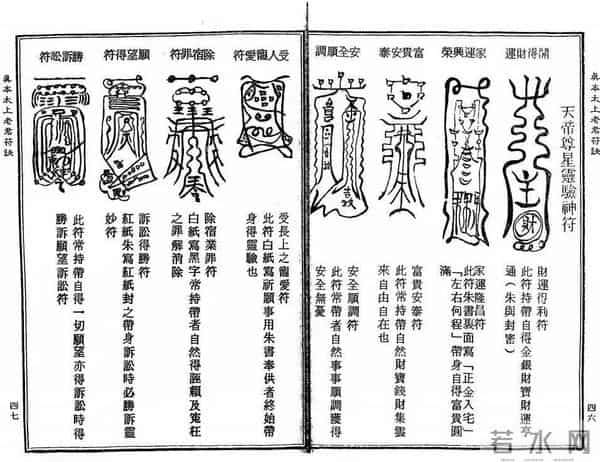 眞本太上老君符訣
四六
天帝尊星靈驗神符
開得財運
財
財運得利符
此符持帶自得金銀財寶財運亨
通（朱與封密）
家運興榮
家運隆昌符
此符朱書裏面寫「正金入宅」
「左右何程」帶身自得富貴圓
滿
富貴安泰
富貴安泰符
此符常持帶自然財寶錢財集雲
來自由自在也
安全順調
安全順調符
此符常帶者自然事事順調獲得
安全無憂
受人寵愛符
受長上之寵愛符
此符白紙寫祈願事用朱書奉供者終始帶
身得靈驗也
除宿罪符
除宿業罪符
白紙寫黑字常持帶者自然得諒願及寃枉
之罪解消除
願望得符
訴訟得勝符
紅紙朱寫紅紙封之帶身訴訟時必勝訴靈
妙符
勝訴訟符
此符常持帶自得一切願望亦得訴訟時得
勝訴願望訴訟符
眞本太上老君符訣
四七
若水网